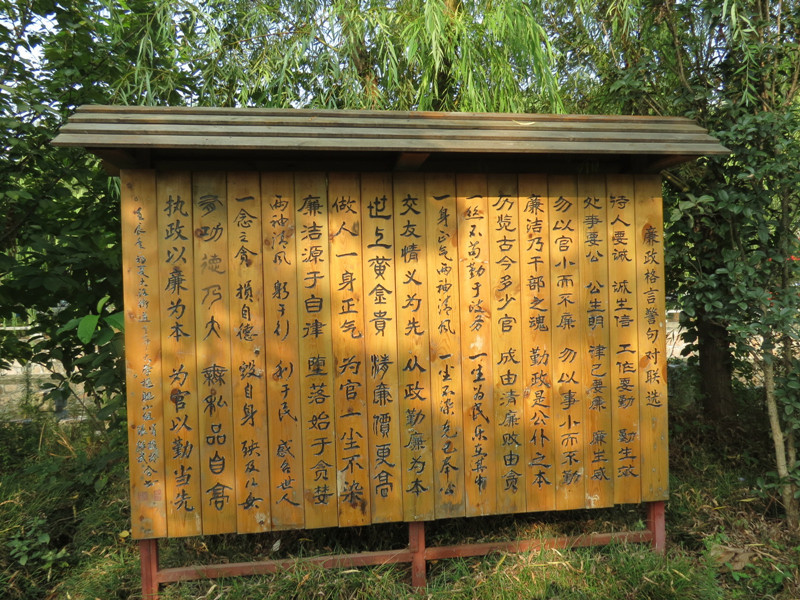 廉政格言警句对联选
待人要诚 诚生信 工作要勤 勤生效
处事要公 公生明 律己要廉 廉生威
勿以官小而不廉 勿以事小而不勤
廉洁乃干部之魂 勤政是公仆之本
历览古今多少官 成由清廉败由贪
一丝不苟勤于政务 一生为民乐在其中
一身正气两袖清风 一尘不染克己奉公
交友情义为先 从政勤廉为本
世上黄金贵 清廉价更高
做人一身正气 为官一尘不染
廉洁源于自律 堕落始于贪婪
两袖清风 躬于行 利于民 感召世人
一念之贪 损自德 毁自身 殃及儿女
多功德乃大 无私品自高
执政以廉为本 为官以勤当先